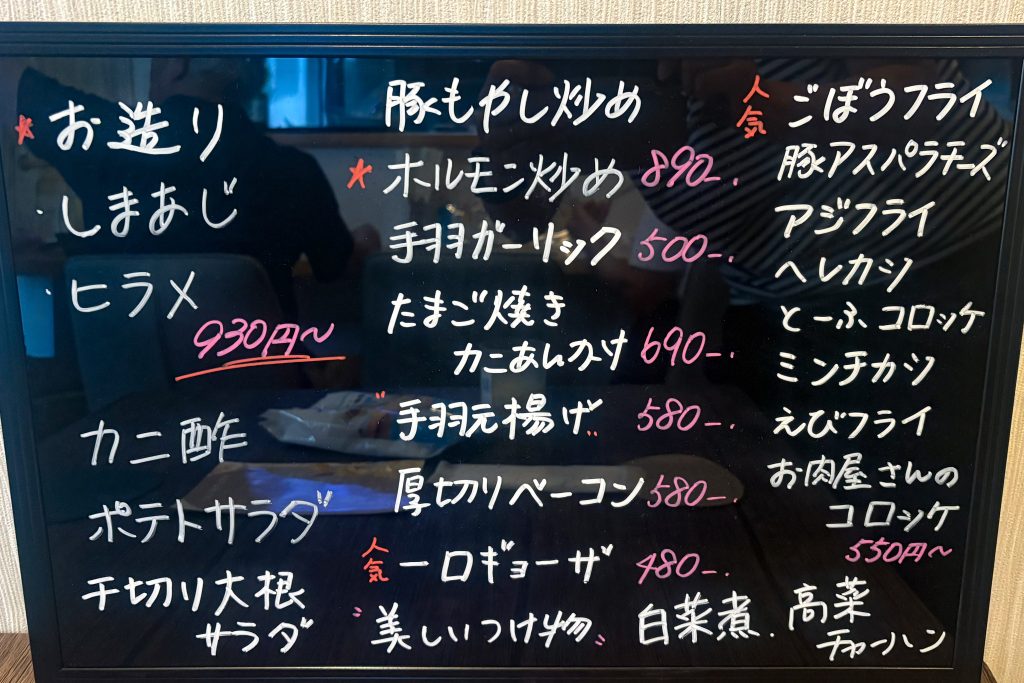 ★お造り
・しまあじ
・ヒラメ
930円〜
カニ酢
ポテトサラダ
千切り大根
サラダ
豚もやし炒め
★ホルモン炒め 890-.
手羽ガーリック 500-.
たまご焼き
カニあんかけ 690-.
"手羽元揚げ" 580-.
厚切りベーコン 580-.
人気 一口ギョーザ 480-.
"美しいつけ物"
白菜煮.
人気 ごぼうフライ
豚アスパラチーズ
アジフライ
ヘレカツ
とーふコロッケ
ミンチカツ
えびフライ
お肉屋さんの
コロッケ
550円〜
高菜
チャーハン